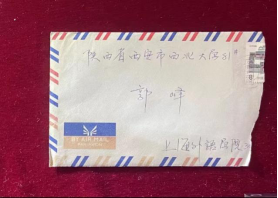 陕西省西安市西北大学81#
郭峰
上海外语学院
BY AIR MAIL